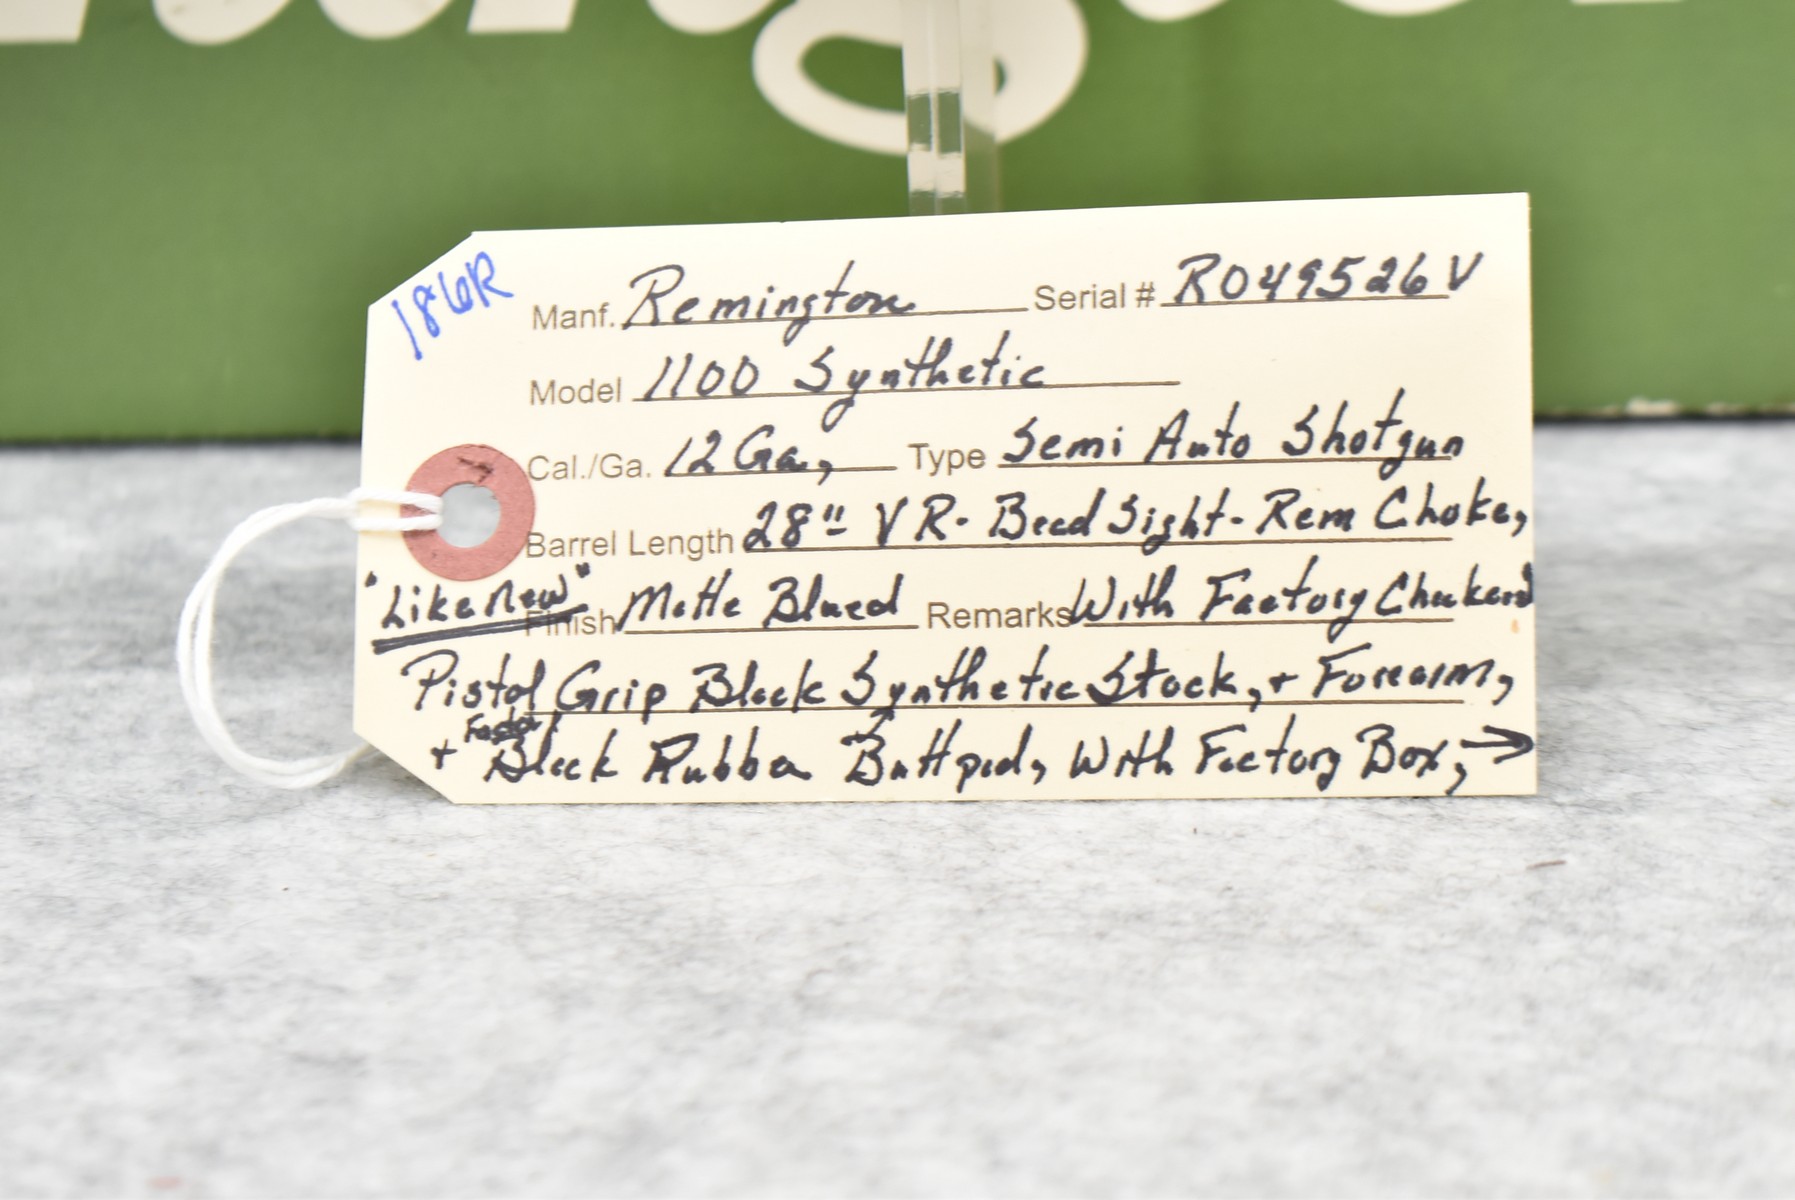 186R
Manf. Remington Serial # R049526V
Model 1100 Synthetic
Cal./Ga. 12 Ga, Type Semi Auto Shotgun
Barrel Length 28" VR- Bead Sight- Rem Choke,
"Like New" Finish Matte Blued Remarks With Factory Checkered
Pistol Grip Black Synthetic Stock, + Forearm,
+ Factory Black Rubber Buttpad, With Factory Box, →